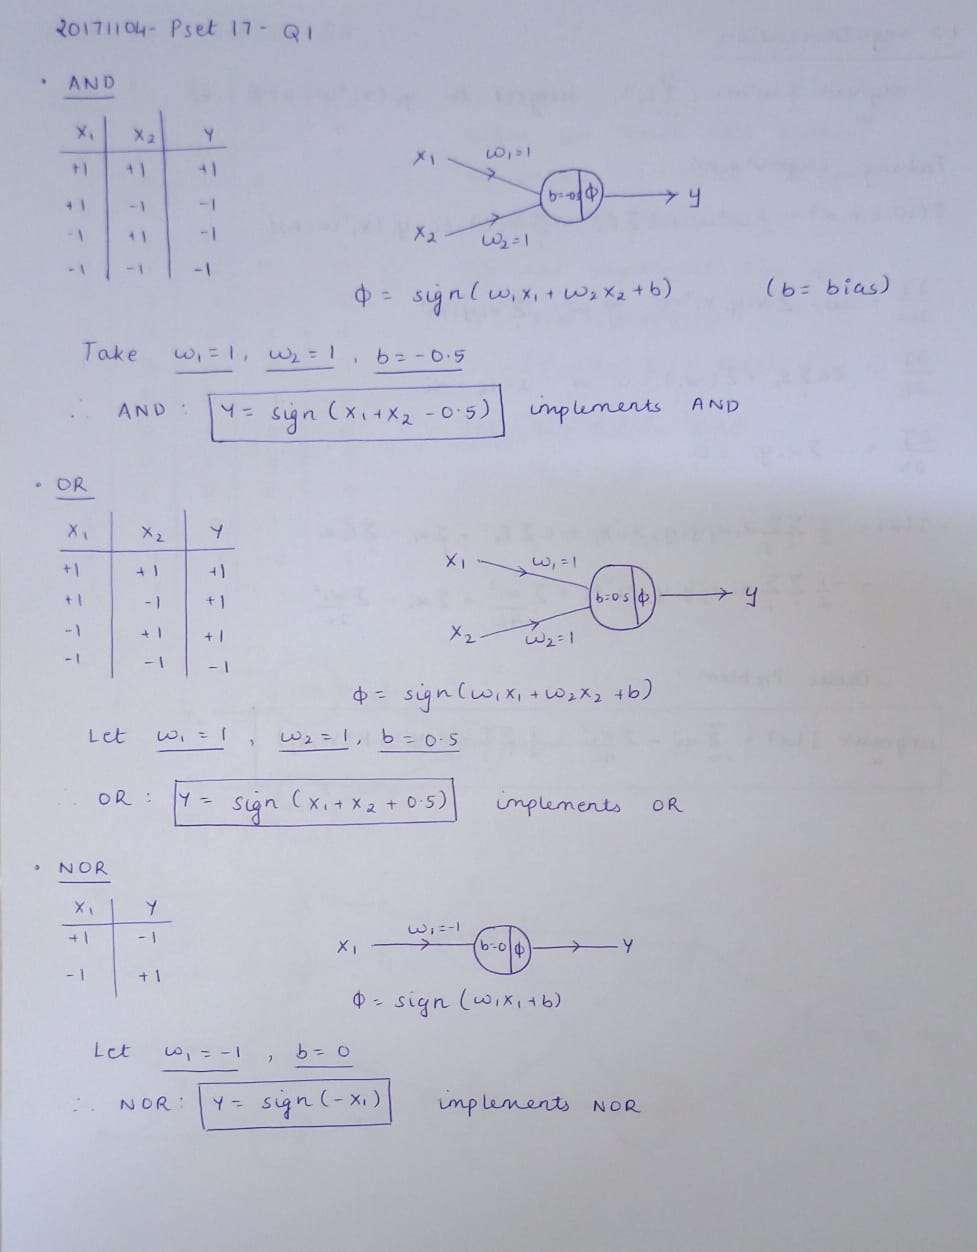 20171104- Pset 17- Q1
• AND
X₁ X₂ Y
+1 +1 +1
+1 -1 -1
-1 +1 -1
-1 -1 -1
X₁ ω₁=1
b=-0.5 ϕ y
X₂ ω₂=1
ϕ = sign(ω₁x₁ + ω₂x₂ + b) (b = bias)
Take ω₁ = 1, ω₂ = 1, b = -0.5
∴ AND : Y = sign (x₁ + x₂ - 0.5) implements AND
• OR
X₁ X₂ Y
+1 +1 +1
+1 -1 +1
-1 +1 +1
-1 -1 -1
X₁ ω₁=1
b=0.5 ϕ y
X₂ ω₂=1
ϕ = sign(ω₁x₁ + ω₂x₂ + b)
Let ω₁ = 1, ω₂ = 1, b = 0.5
∴ OR : Y = sign (x₁ + x₂ + 0.5) implements OR
• NOR
X₁ Y
+1 -1
-1 +1
X₁ ω₁=-1 b=0 ϕ Y
ϕ = sign (ω₁x₁ + b)
Let ω₁ = -1, b = 0
∴ NOR : Y = sign (-x₁) implements NOR